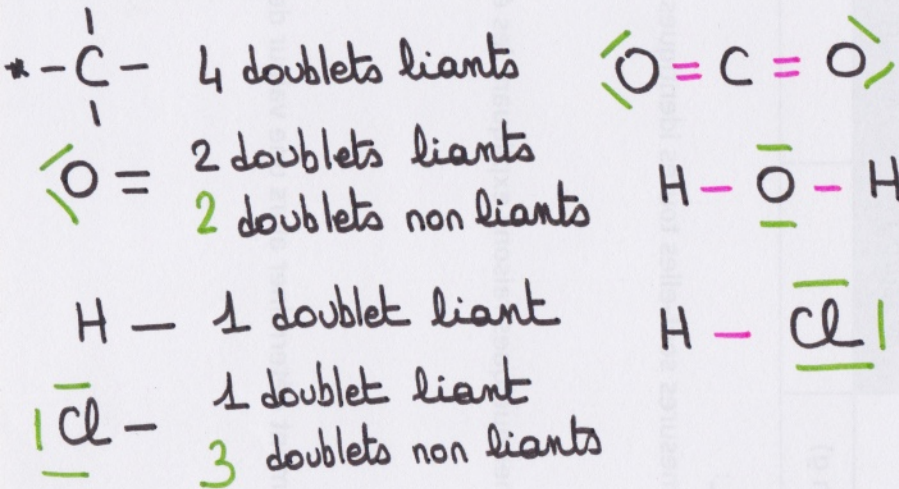 * - C - 4 doublets liants
O = C = O
O = 2 doublets liants
2 doublets non liants
H - O - H
H - 1 doublet liant
H - Cl
Cl - 1 doublet liant
3 doublets non liants